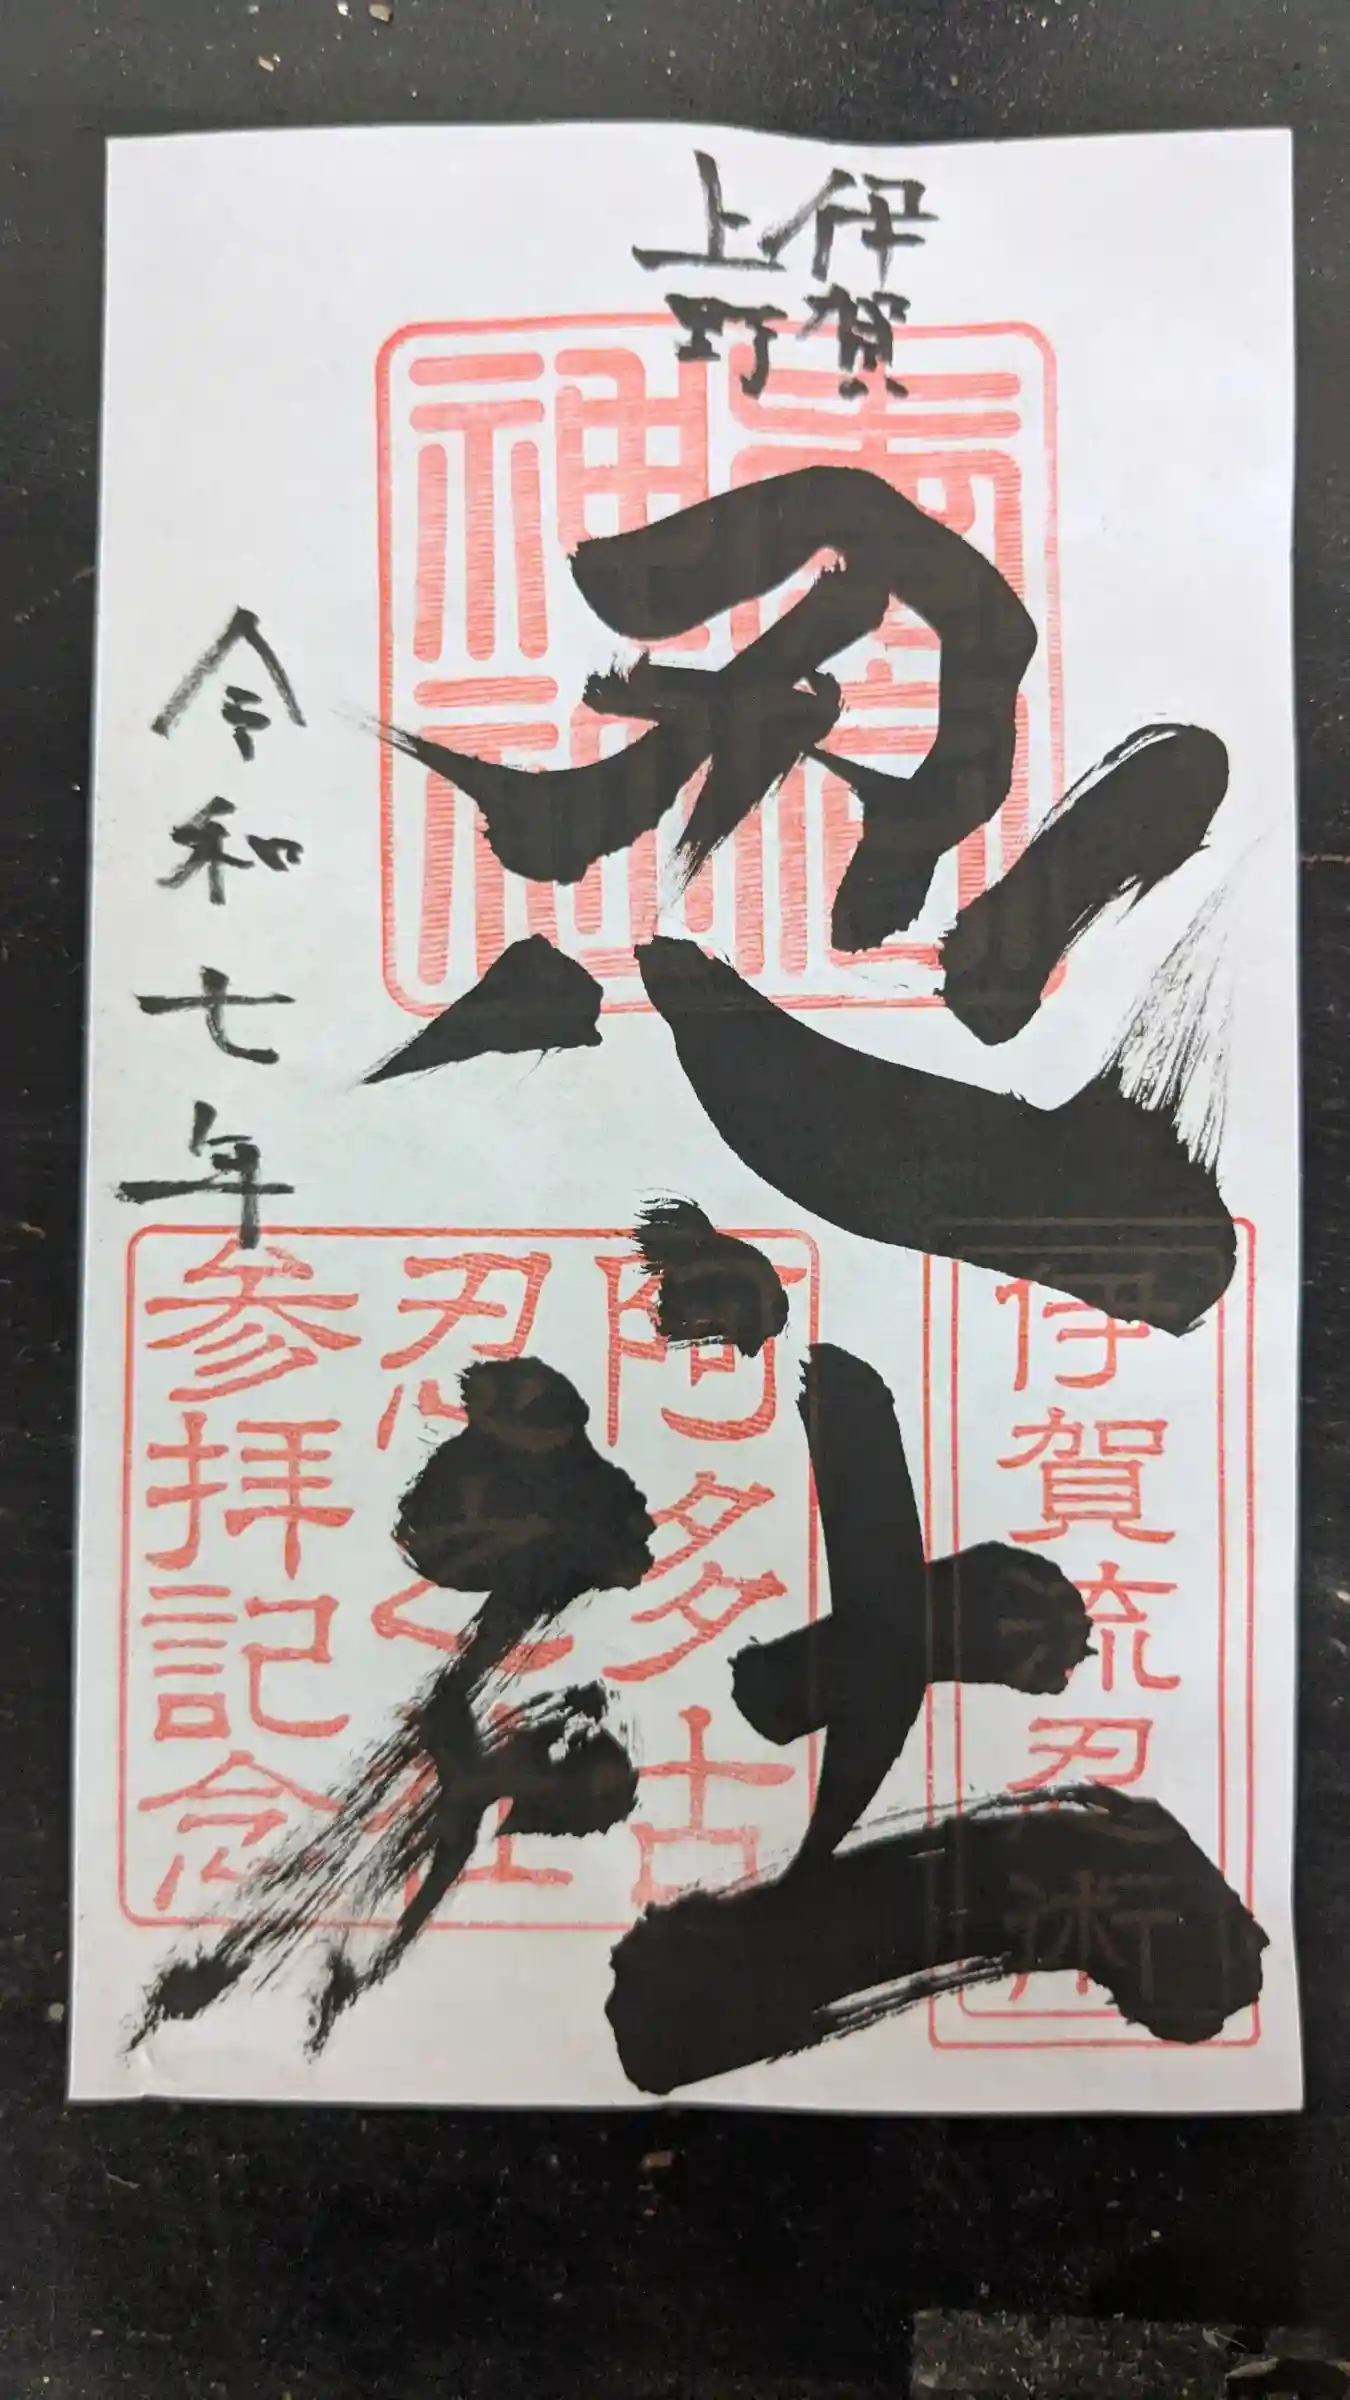 伊賀
上野
神社
忍社
令和七年
伊賀流忍術
阿多古
忍之社
参拝記念